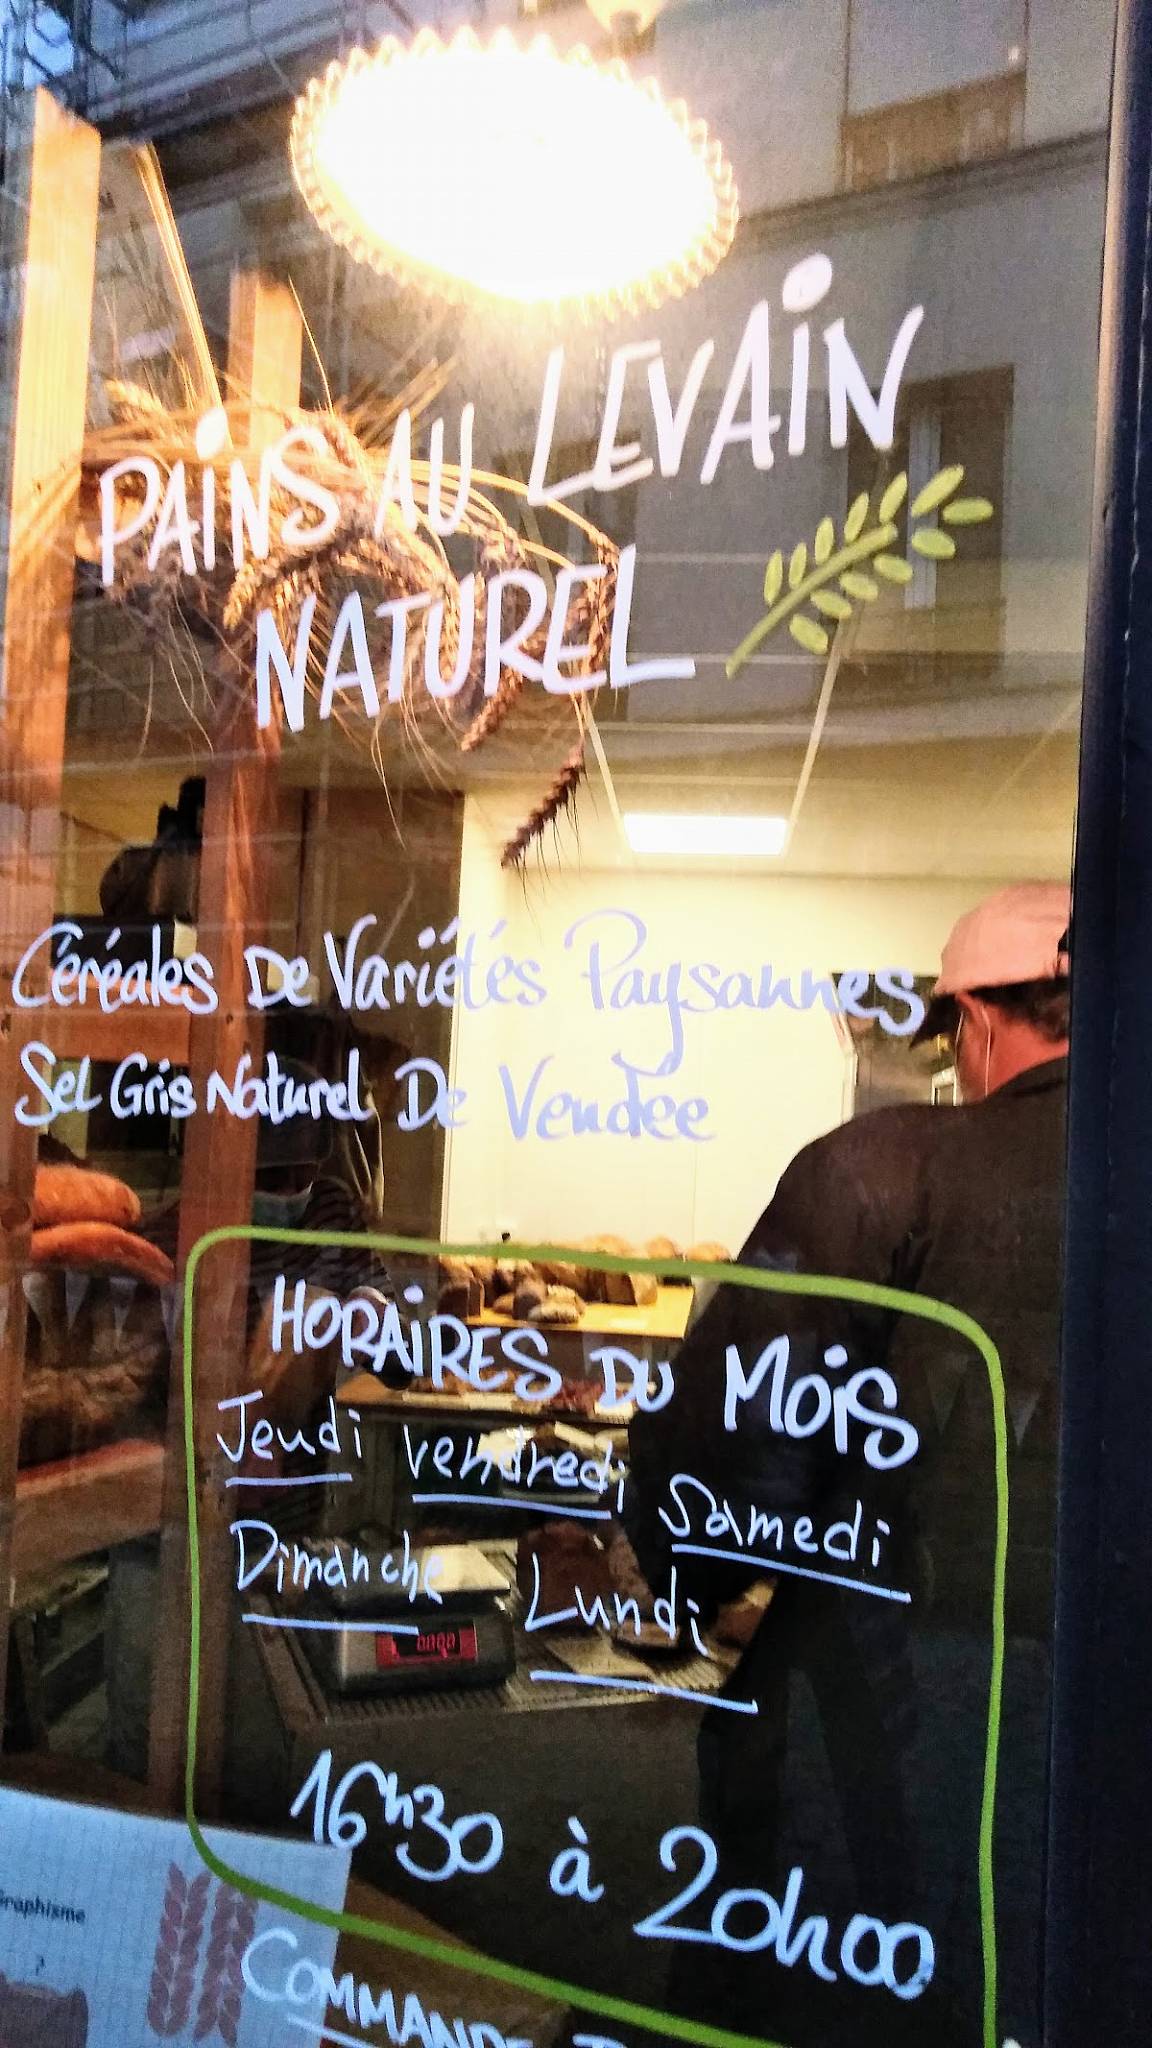 PAiNS AU LEVAiN
NATUREL
Céréales De Variétés Paysannes
Sel Gris Naturel De Vendée
HORAiRES DU MOiS
Jeudi vendredi Samedi
Dimanche Lundi
0000
16h30 à 20h00
Graphisme
?
COMMANDE